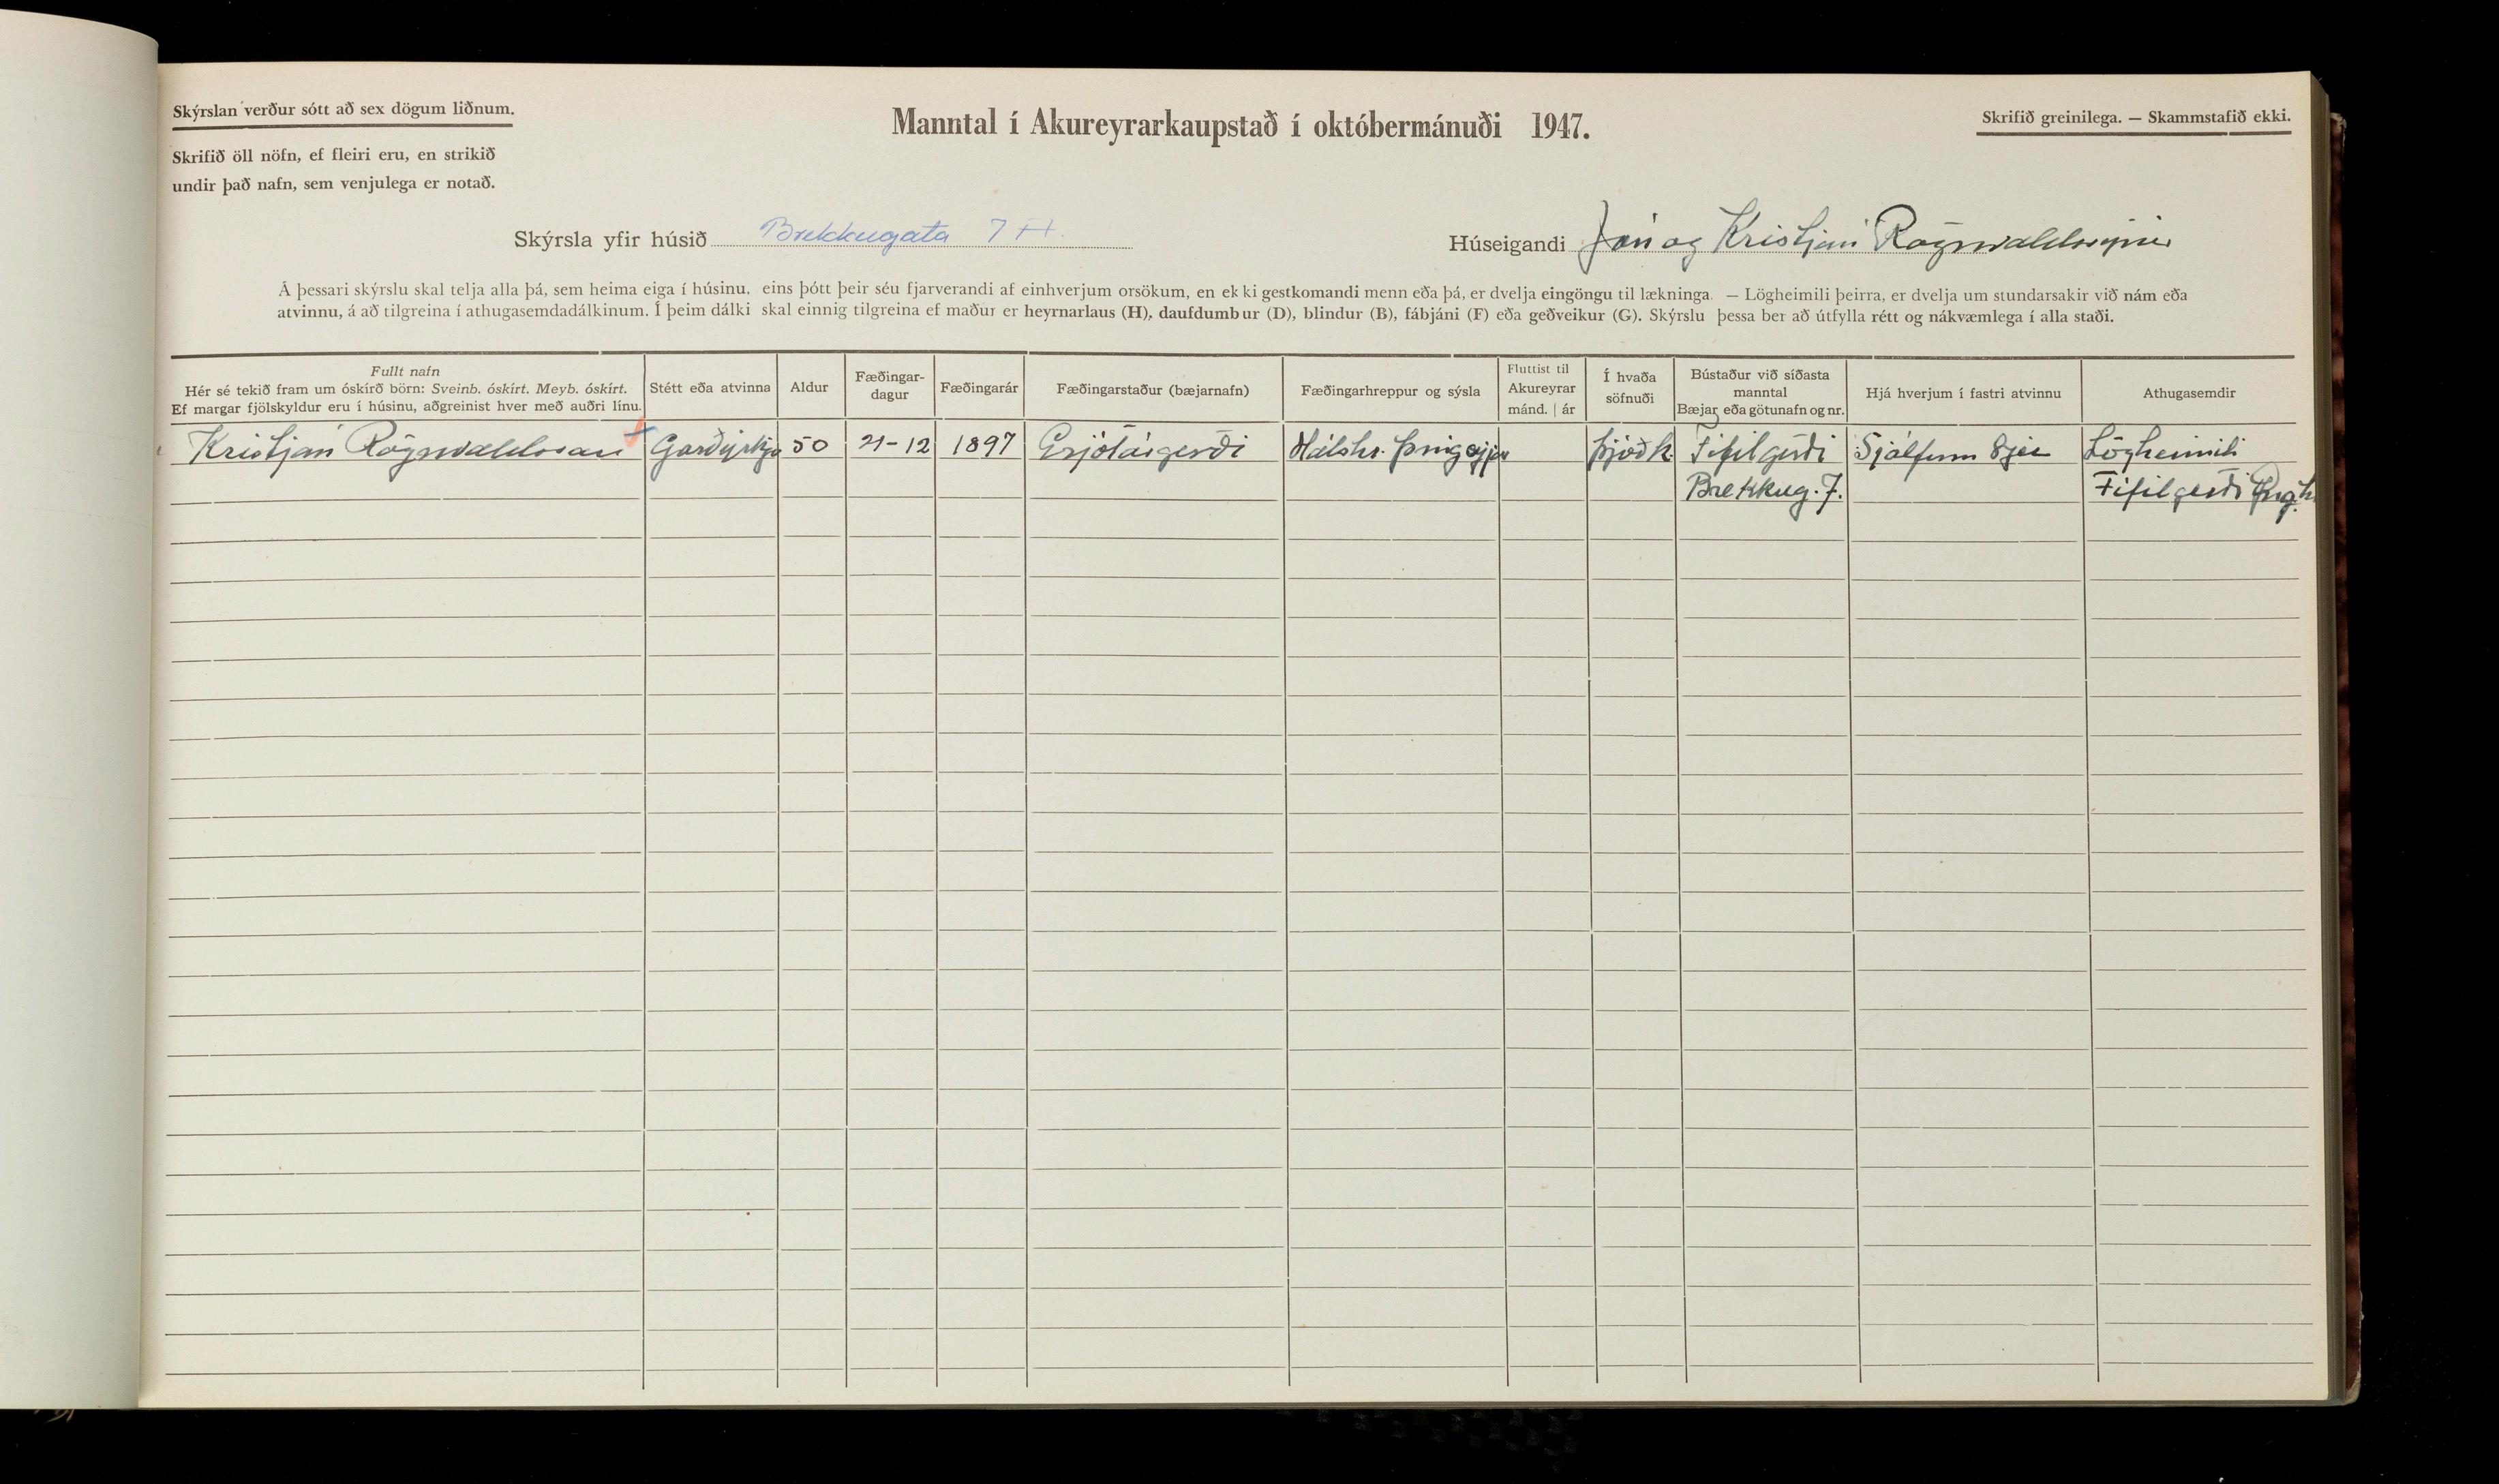 Skýrslan verður sótt að sex dögum liðnum.
Manntal í Akureyrarkaupstað í októbermánuði 1947.
Skrifið greinilega. — Skammstafið ekki.
Skrifið öll nöfn, ef fleiri eru, en strikið
undir það nafn, sem venjulega er notað.
Skýrsla yfir húsið Brekkugata 7 H
Húseigandi Jón og Kristján Rögnvaldssynir
Á þessari skýrslu skal telja alla þá, sem heima eiga í húsinu, eins þótt þeir séu fjarverandi af einhverjum orsökum, en ekki gestkomandi menn eða þá, er dvelja eingöngu til lækninga. — Lögheimili þeirra, er dvelja um stundarsakir við nám eða
atvinnu, á að tilgreina í athugasemdadálkinum. Í þeim dálki skal einnig tilgreina ef maður er heyrnarlaus (H), daufdumbur (D), blindur (B), fábjáni (F) eða geðveikur (G). Skýrslu þessa ber að útfylla rétt og nákvæmlega í alla staði.
Fullt nafn
Hér sé tekið fram um óskírð börn: Sveinb. óskírt. Meyb. óskírt.
Ef margar fjölskyldur eru í húsinu, aðgreinist hver með auðri línu.
Stétt eða atvinna
Aldur
Fæðingar-
dagur
Fæðingarár
Fæðingarstaður (bæjarnafn)
Fæðingarhreppur og sýsla
Fluttist til
Akureyrar
mánd. | ár
Í hvaða
söfnuði
Bústaður við síðasta
manntal
Bæjar eða götunafn og nr.
Hjá hverjum í fastri atvinnu
Athugasemdir
Kristján Rögnvaldsson Garðyrkju 50 21-12 1897 Grjótárgerði Hálshr. Þingeyjar Þjóðk. Fífilgerði Sjálfum sjer Lögheimili
Brekkug. 7. Fífilgerði